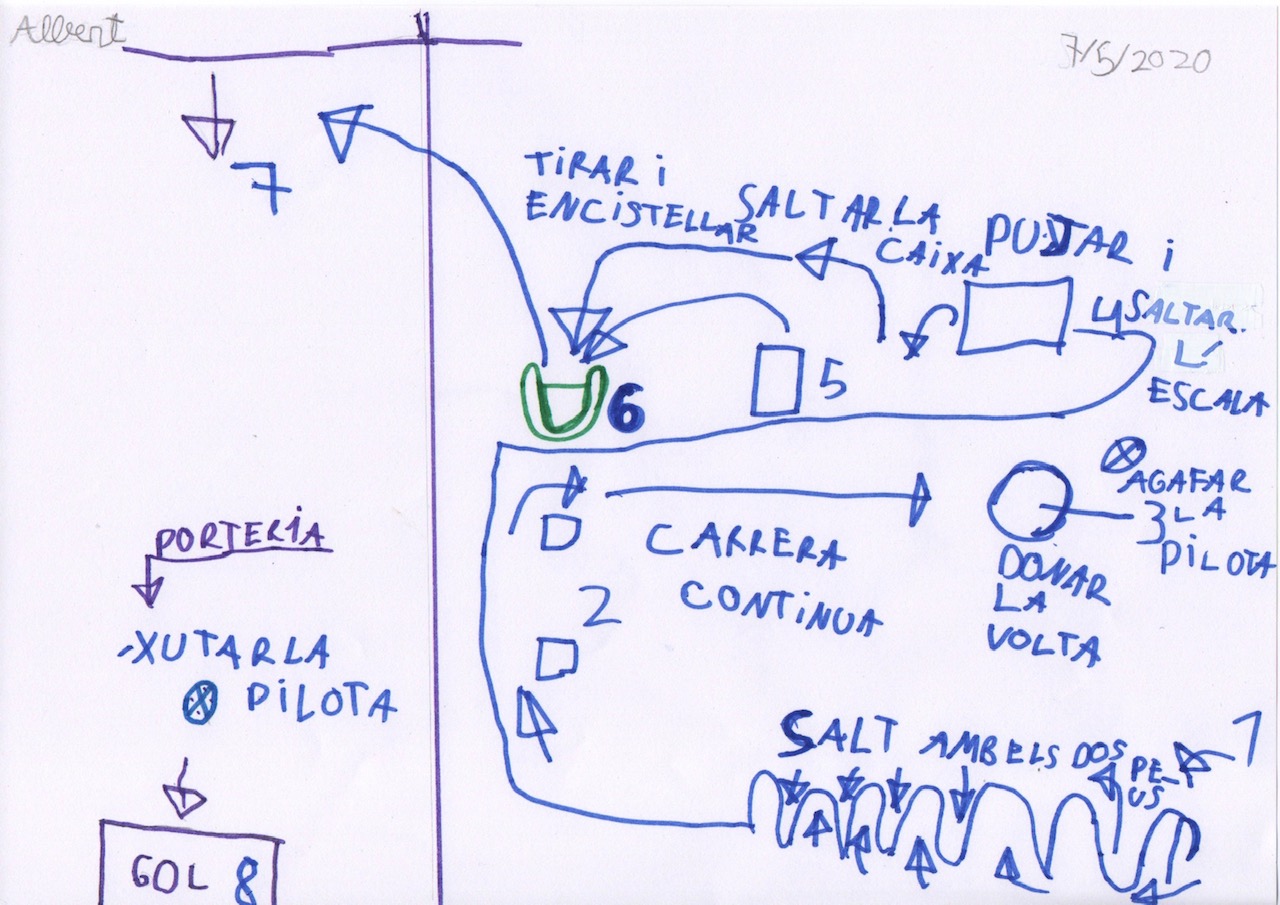 Albert
7/5/2020
7
TIRAR i
ENCISTELLAR
SALTAR LA
CAIXA
PUJAR i
4 SALTAR.
L'
ESCALA
5
6
AGAFAR
3 LA
PILOTA
CARRERA
CONTINUA
DONAR
LA
VOLTA
2
PORTERIA
-XUTAR LA
PILOTA
SALT AMB ELS DOS PE-
US
1
GOL 8